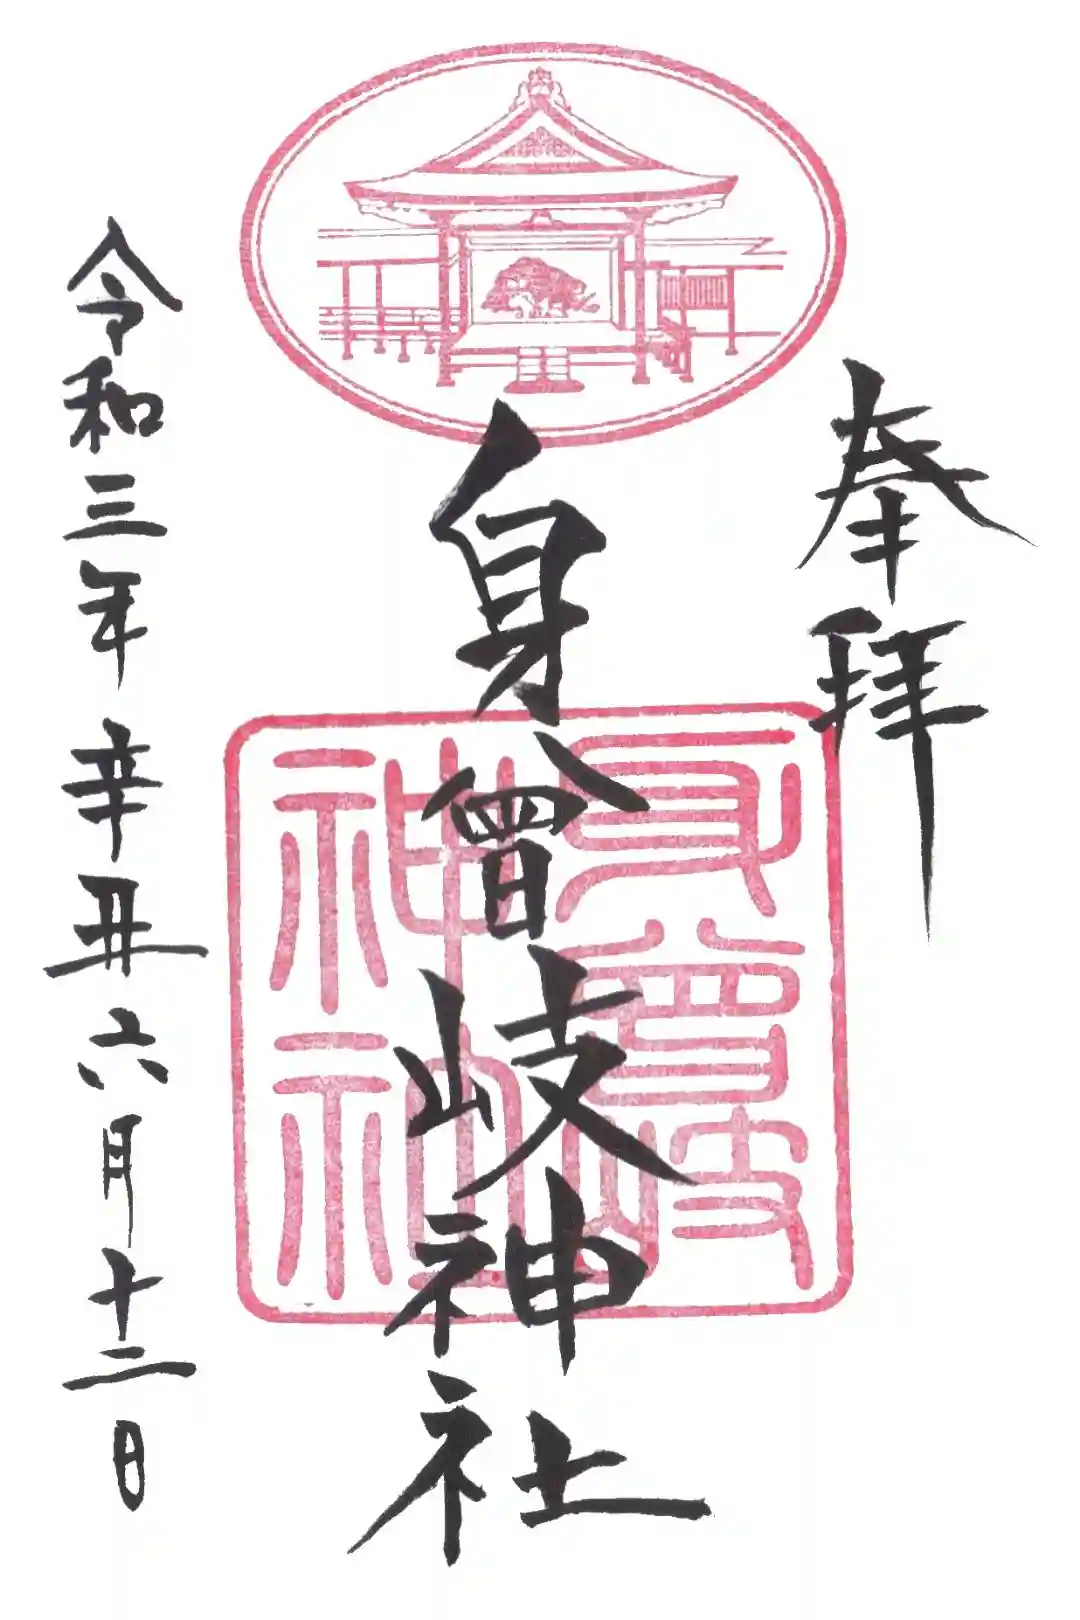 奉拝
身曾岐神社
身曾岐神社
令和三年 辛丑 六月十二日